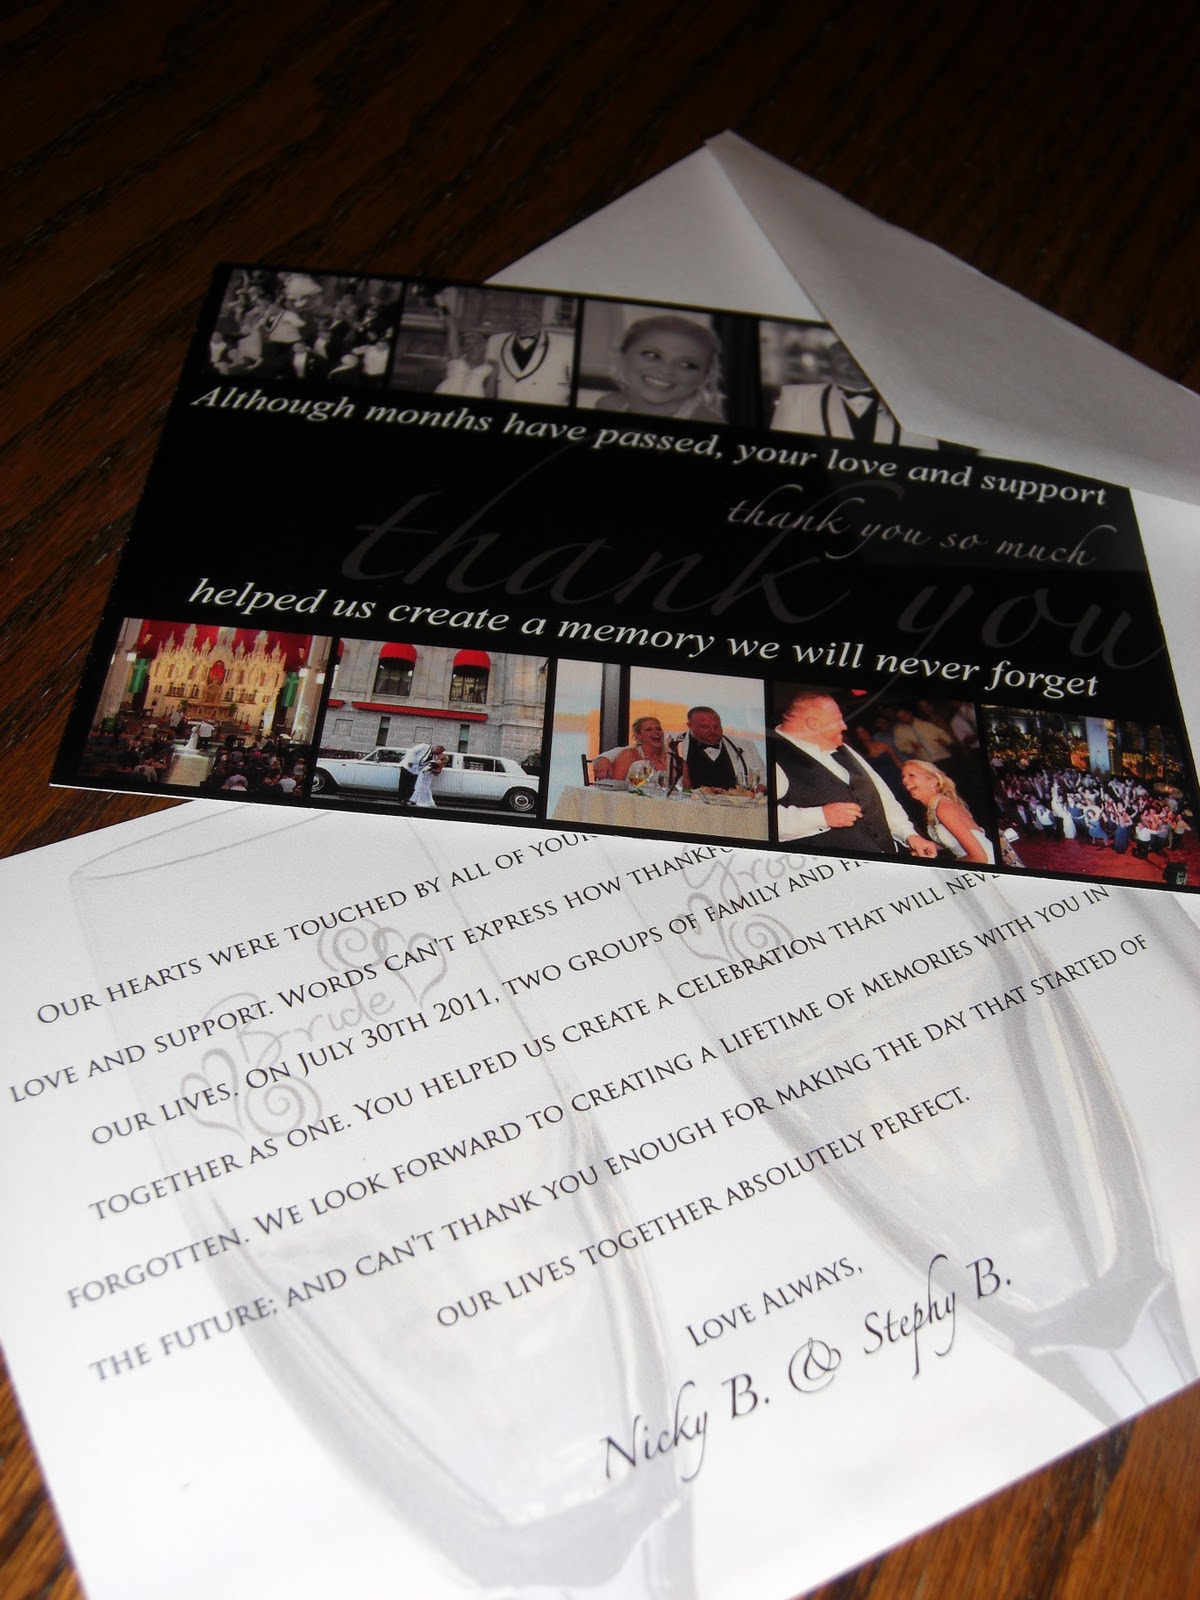 Although months have passed, your love and support
thank you so much
thank you
helped us create a memory we will never forget
OUR HEARTS WERE TOUCHED BY ALL OF YOUR
LOVE AND SUPPORT. WORDS CAN'T EXPRESS HOW
OUR LIVES. ON JULY 30TH 2011, TWO GROUPS OF FAMILY AND
TOGETHER AS ONE. YOU HELPED US CREATE A CELEBRATION THAT WILL
FORGOTTEN. WE LOOK FORWARD TO CREATING A LIFETIME OF MEMORIES WITH YOU IN
THE FUTURE; AND CAN'T THANK YOU ENOUGH FOR MAKING THE DAY THAT STARTED OF
OUR LIVES TOGETHER ABSOLUTELY PERFECT.
LOVE ALWAYS,
Nicky B. & Stephy B.
Bride